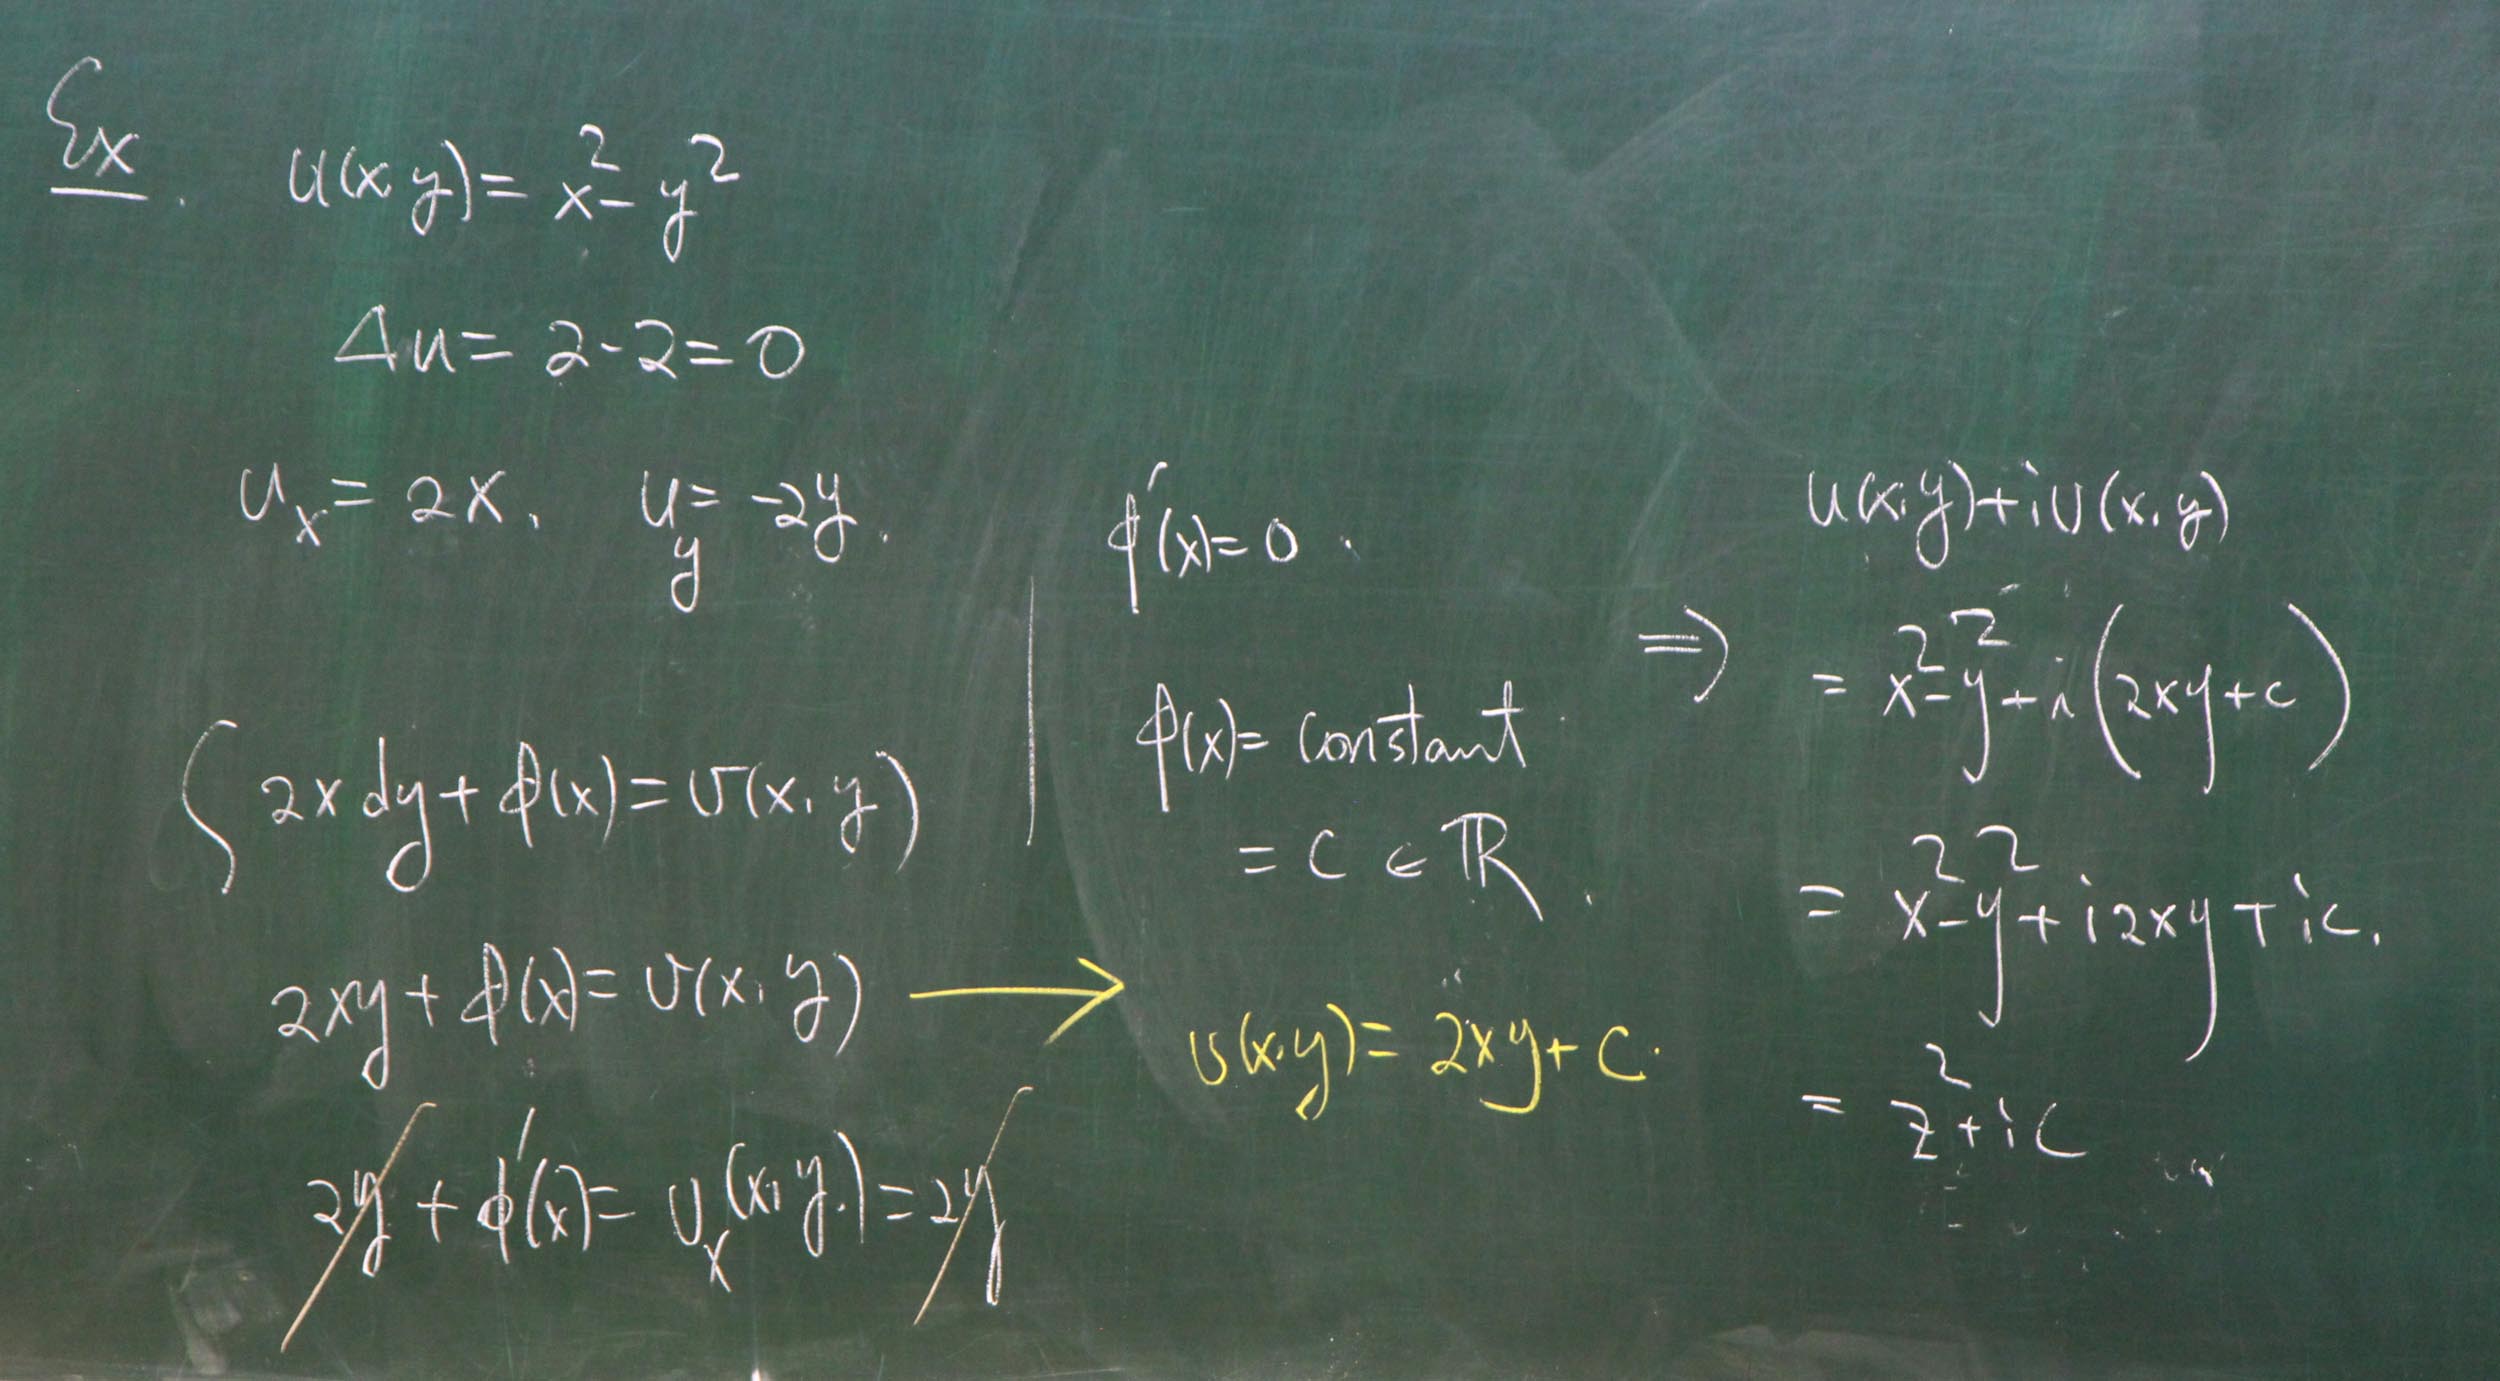 Ex. u(x,y) = x² - y²
Δu = 2 - 2 = 0
u_x = 2x, u_y = -2y.
∫ 2x dy + φ(x) = v(x,y)
2xy + φ(x) = v(x,y) →
2y + φ'(x) = v_x(x,y) = 2y
φ'(x) = 0.
φ(x) = constant
= c ∈ ℝ.
v(x,y) = 2xy + c.
⇒ u(x,y) + iv(x,y)
= x² - y² + i(2xy + c)
= x² - y² + i2xy + ic.
= z² + ic